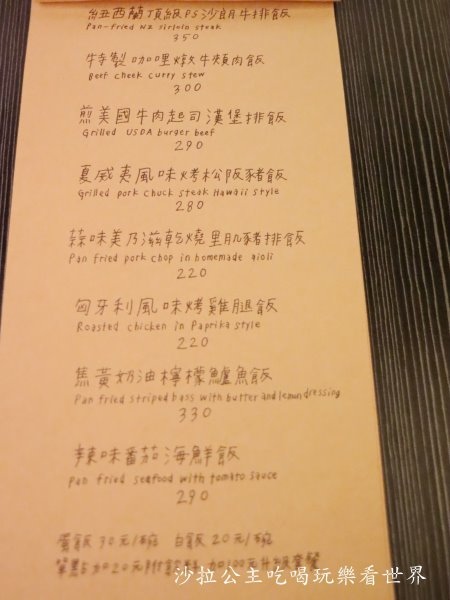 紐西蘭頂級PS沙朗牛排飯
Pan-fried NZ sirloin steak
350
特製咖哩燉牛頰肉飯
Beef cheek curry stew
300
煎美國牛肉起司漢堡排飯
Grilled USDA burger beef
290
夏威夷風味烤松阪豬飯
Grilled pork chuck steak Hawaii style
280
蒜味美乃滋乾燒里肌豬排飯
Pan fried pork chop in homemade aioli
220
匈牙利風味烤雞腿飯
Roasted chicken in Paprika style
220
焦黃奶油檸檬鱸魚飯
Pan fried striped bass with butter and lemon dressing
330
辣味番茄海鮮飯
Pan fried seafood with tomato sauce
290
薑飯 30元/碗 白飯 20元/碗
單點加20元附飲料 加100元升級套餐
沙拉公主吃喝玩樂看世界